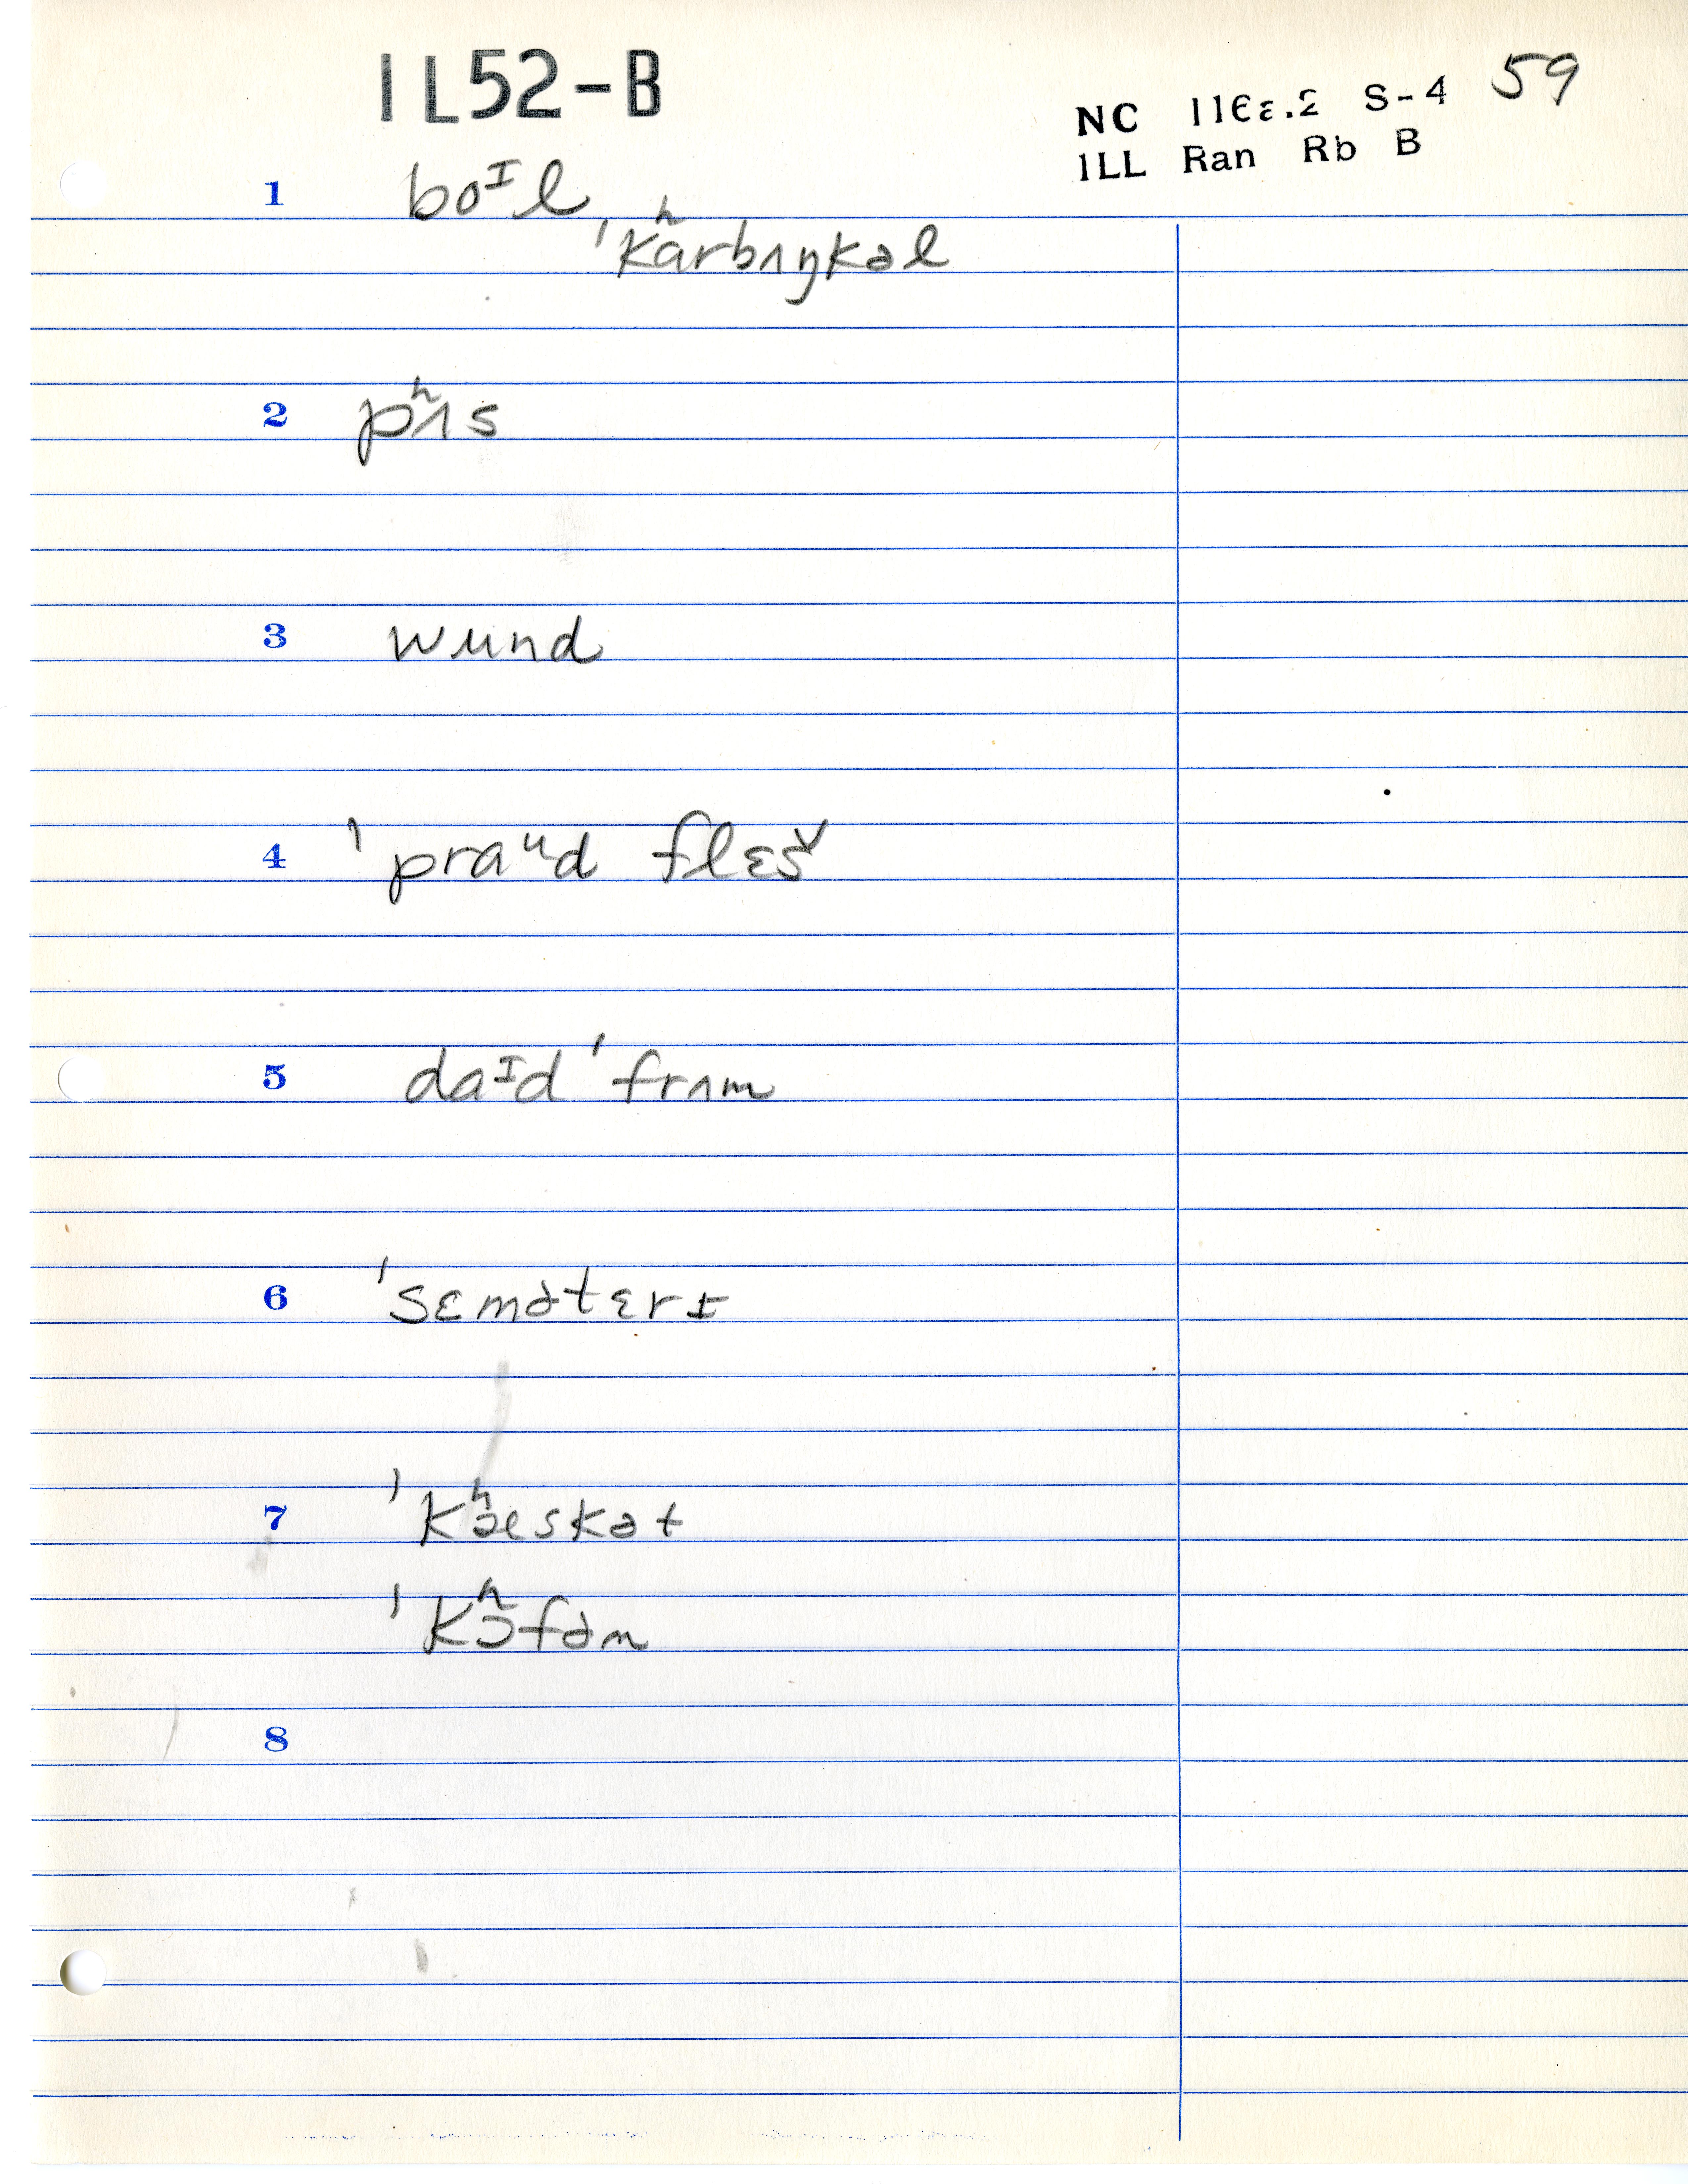 IL52-B
NC 116ε.2 S-4 59
ILL Ran Rb B
1 boᶦl,
ˈkʰarbʌŋkəl
2 pʰʌs
3 wund
4 ˈpraᵘd flɛš
5 daᶦd ˈfrʌm
6 ˈsɛmətɛrɪ
7 ˈkʰæskət
ˈkʰɔfən
8